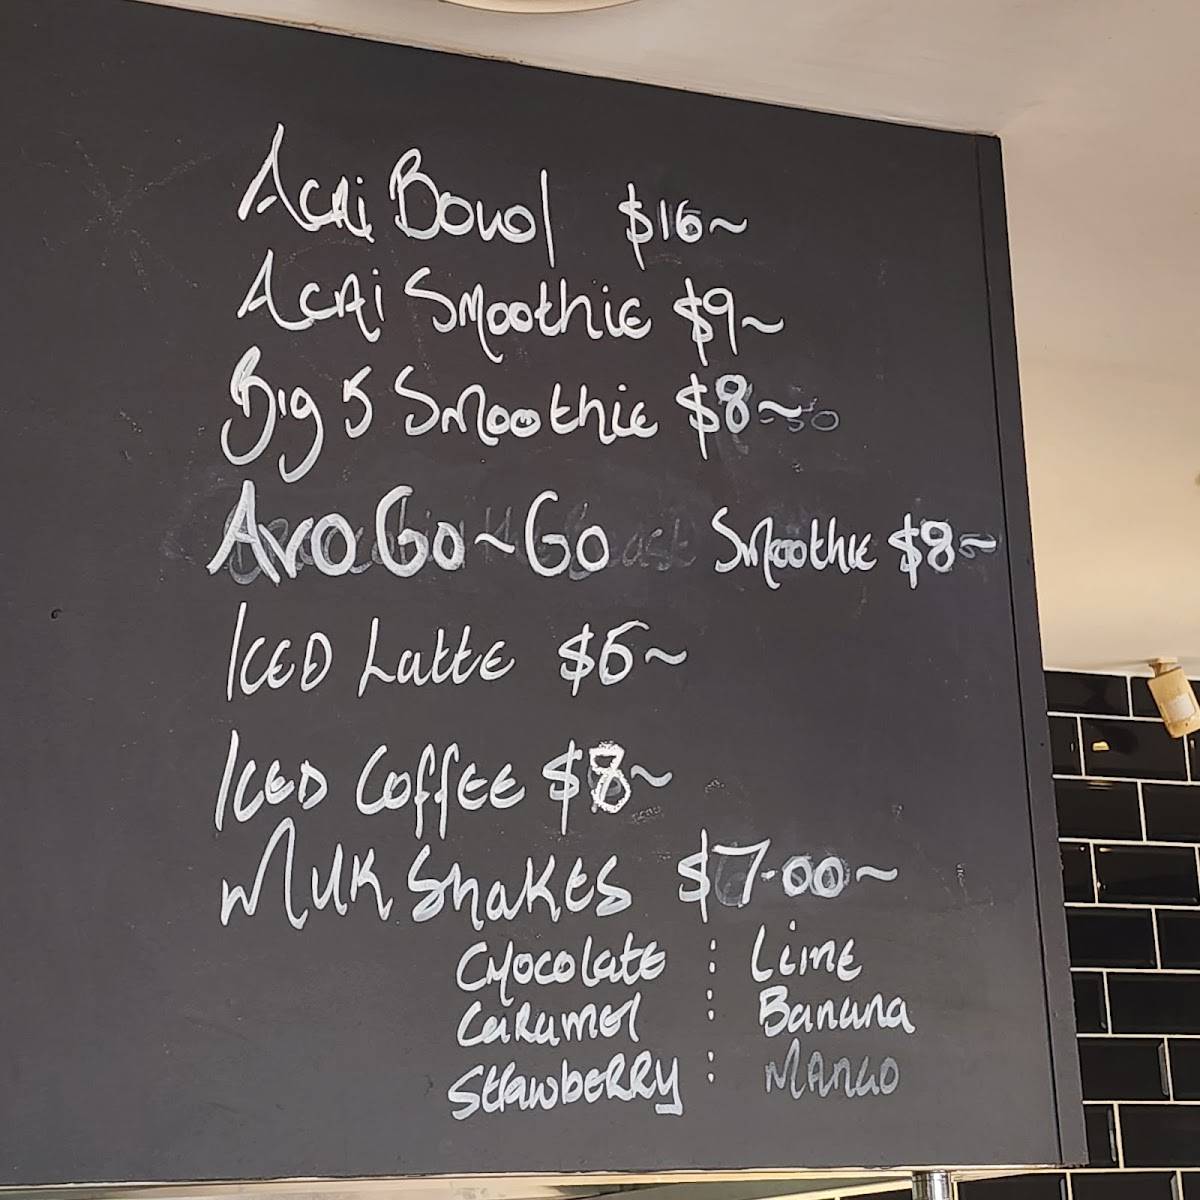 Acai Bowl $16~
Acai Smoothie $9~
Big 5 Smoothie $8~
Avo Go~Go Smoothie $8~
Iced Latte $6~
Iced Coffee $8~
Milk Shakes $7.00~
Chocolate : Lime
Caramel : Banana
Strawberry : Mango